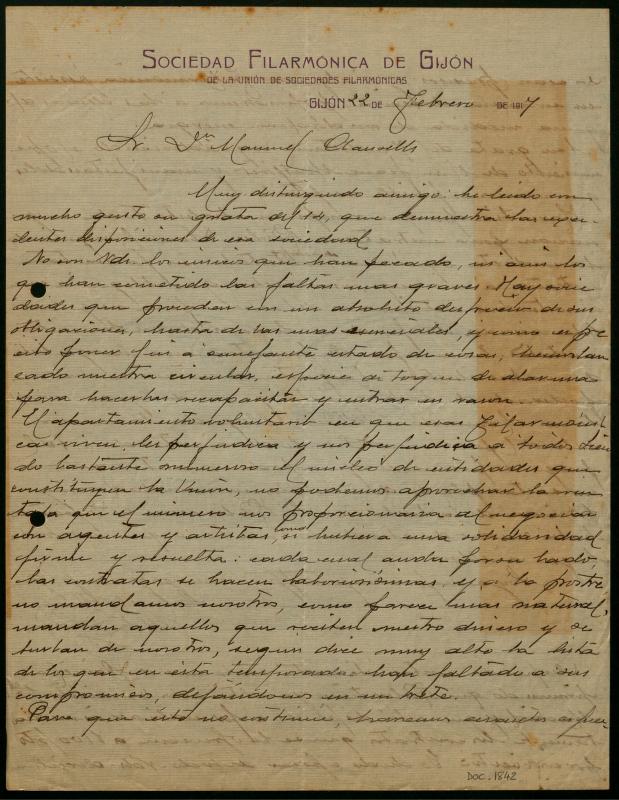 Sociedad Filarmónica de Gijón
de la Unión de Sociedades Filarmónicas
Gijón 22 de Febrero de 1917
Sr. Dn Manuel Clausells
Muy distinguido amigo: he leido con
mucho gusto su grata del 14, que demuestra las exce-
lentes disposiciones de esa sociedad.
No son Vds. los unicos que han pecado, ni aun los
que han cometido las faltas mas graves. Hay socie
dades que proceden con un absoluto desprecio de sus
obligaciones, hasta de las mas esenciales, y como es pre
ciso poner fin a semejante estado de cosas, hemos lan
zado nuestra circular, especie de toque de alarma
para hacerlas recapacitar y entrar en razon.
El apartamiento voluntario en que esas Filarmóni
cas viven les perjudica y nos perjudica a todos. Sien
do bastante numeroso el nucleo de entidades que
constituyen la Unión, no podemos aprovechar la ven
taja que el numero nos proporcionaria al negociar
con agentes y artistas, si hubiera una solidaridad
firme y resuelta: cada cual anda por su lado,
las contratas se hacen laboriosisimas, y a la postre
no mandamos nosotros, como parece mas natural,
mandan aquellos que reciben nuestro dinero y se
burlan de nosotros, segun dice muy alto la lista
de los que en esta temporada han faltado a sus
compromisos, dejándonos en un brete.
Para que ésto no continúe, haremos
DOC. 1842